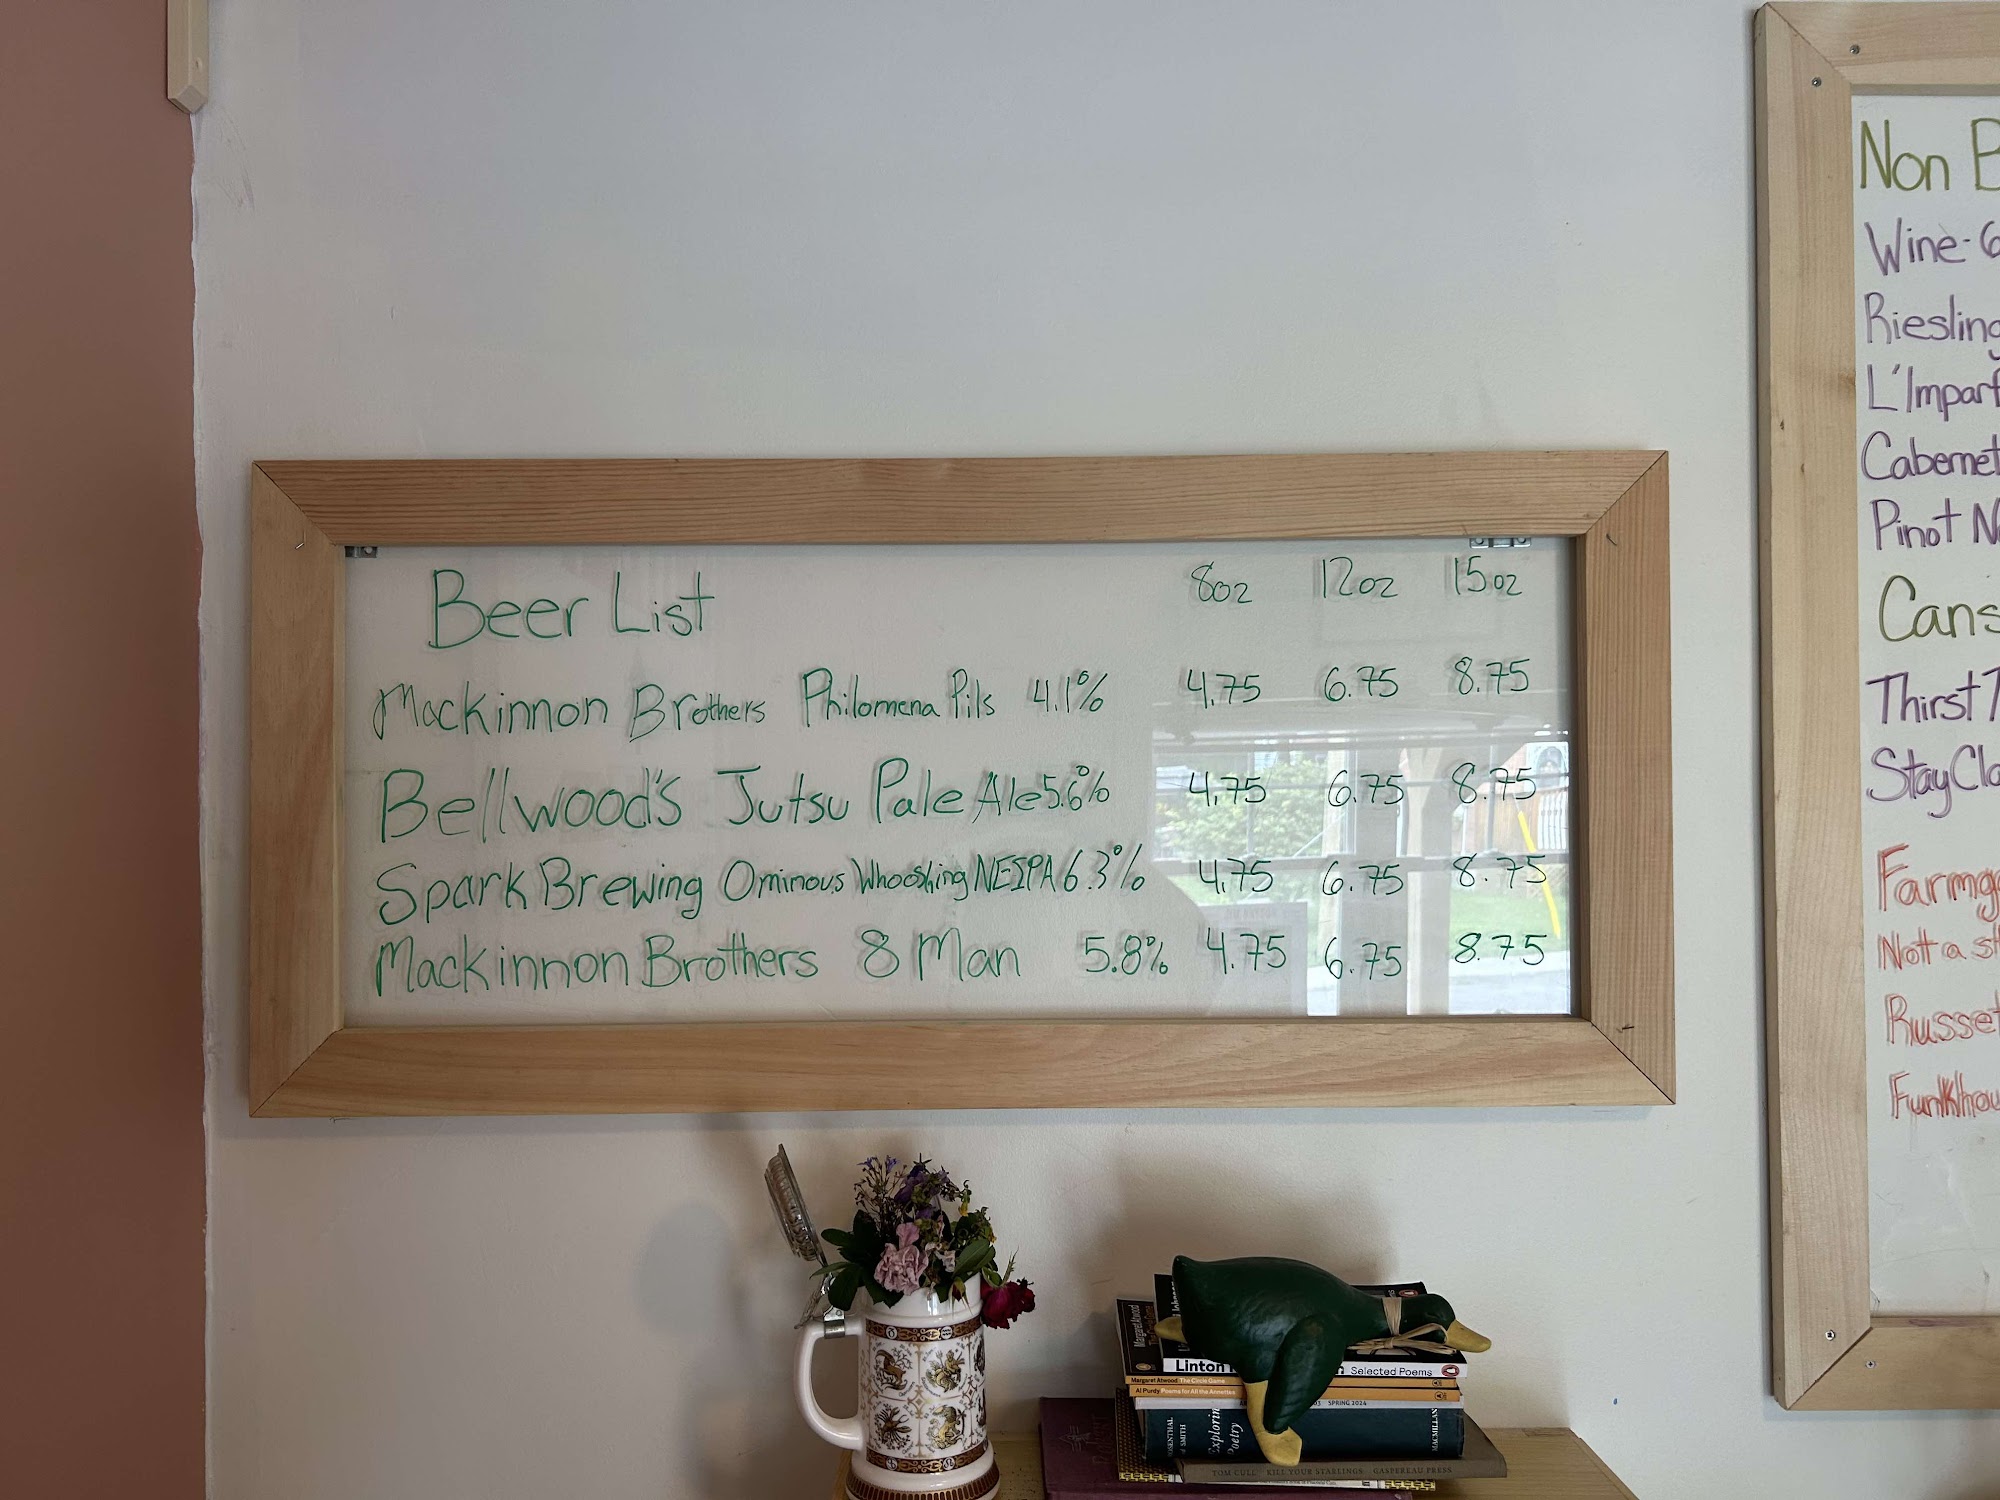 Beer List 8oz 12oz 15oz
Mackinnon Brothers Philomena Pils 4.1% 4.75 6.75 8.75
Bellwood's Jutsu Pale Ale 5.6% 4.75 6.75 8.75
Spark Brewing Ominous Whooshing NEIPA 6.3% 4.75 6.75 8.75
Mackinnon Brothers 8 Man 5.8% 4.75 6.75 8.75
Non B
Wine - 6
Riesling
L'Imparf
Cabernet
Pinot N
Cans
Thirst T
Stay Cla
Farmg
Not a st
Russet
Funkhou
Margaret Atwood
Linton
Selected Poems
Margaret Atwood The Circle Game
Al Purdy Poems for All the Annettes
SPRING 2024
ROSENTHAL
SMITH
Exploring
Poetry
MACMILLAN
TOM CULL KILL YOUR STARLINGS GASPEREAU PRESS